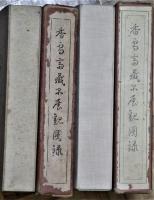 香雪斎蔵品展観図録
香雪斎蔵品展観図録